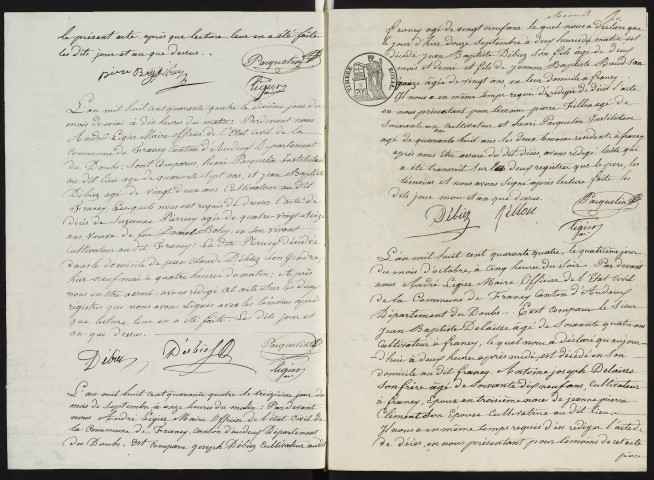 le présent acte, après que lecture leur en a été faite
les dits jour et an que dessus.
Paequelin
Ligier
L'an mil huit cent quarante quatre le dixième jour du
mois de mai à dix heures du matin: Pardevant nous
André Ligier Maire Officier de l'Etat Civil de la
Commune de Franey Canton d'Audeux Département
du Doubs: Sont comparus henri Paequelin Instituteur
au dit lieu agé de quarante Sept ans, et jean Baptiste
Débiez agé de vingt deux ans Cultivateur au dit
Franey Lesquels nous ont requis de dresser l'acte de
décès de Suzanne Pierrey agée de quatre vingt Seize
ans Veuve de feu Boley, en son vivant
Cultivateur au dit Franey: la dite Pierrey décédée
dans le domicile de jean Claude Débiez Son Gendre,
hier neuf mai à quatre heures du matin: Après
nous en être assuré, avons rédigé cet acte sur les deux
registres que nous avons Signés avec les témoins après
que lecture leur en a été faite. Les dits jour et
an que dessus.
Débiez Débiez Paequelin
Ligier
L'an mil huit cent quarante quatre le treizième jour du
mois de Septembre à onze heures du matin: Pardevant
nous André Ligier Maire Officier de l'état Civil de
la Commune de Franey, canton d'audeux Département
du Doubs. Est comparu joseph Débiez Cultivateur au dit
franey agé de vingt neuf ans, lequel nous a déclaré que
le jour d'hier douze Septembre à deux heures du matin est
décédé jean Baptiste Débiez Son fils agé de deux
mois et demi et fils de jeanne Baptiste Baud Son
épouse agée de vingt ans, en leur domicile à franey.
Il nous a en même temps requis de rédiger du dit décès l'acte
en nous présentant pour témoins pierre fillon agé de
Soixante ans Cultivateur et henri Paequelin Instituteur
agé de quarante huit ans les deux témoins résident à franey
après nous être assuré du dit décès, avons rédigé l'acte qui
a été transcrit sur les deux registres que le père, les
témoins et nous avons Signé après lecture faite les
dits jour mois et an que dessus.
Paequelin
Débiez fillon
Ligier
L'an mil huit cent quarante quatre, le quatrième jour
du mois d'octobre, à Cinq heures du Soir. Par devant
nous André Ligier Maire Officier de l'Etat Civil
de la Commune de Franey Canton d'Audeux
Département du Doubs.. Est comparu le Sieur
Jean Baptiste Delaisse agé de Soixante quatre ans
Cultivateur à franey, lequel nous a déclaré qu'aujour-
d'hui à deux heures après midi, est décédé en Son
domicile au dit franey Antoine joseph Delaisse
Son frère agé de Soixante dix neuf ans, Cultivateur
à franey, Epoux en troisième noce de jeanne pierre
Clément Son Epouse Cultivatrice au dit lieu.
Il nous a en même temps requis d'en rédiger l'acte
de décès, en nous présentant pour témoins de cet acte
pierre